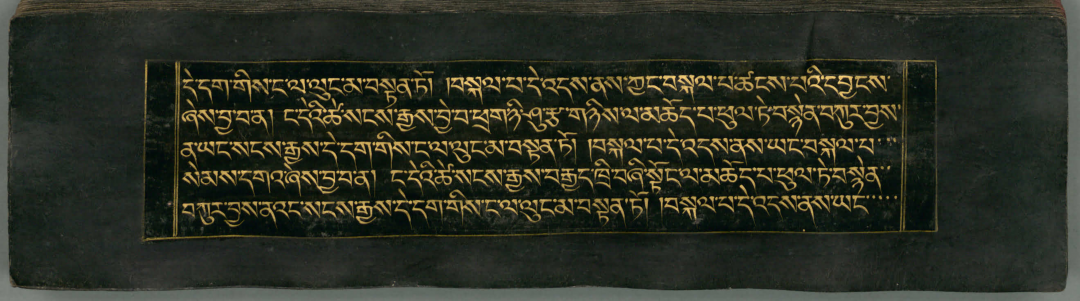 དེ་དག་གིས་ང་ལ་ལུང་མ་བསྟན་ཏོ། །བསྐལ་པ་དེ་འདས་ནས་ཀྱང་བསྐལ་པ་ཚངས་པའི་དབྱངས་
ཞེས་བྱ་བན། ངདེའི་ཚེ་སངས་རྒྱས་བྱེ་བ་ཕྲག་ཉི་ཤུ་རྩ་གཉིས་ལ་མཆོད་པ་ཕུལ་ཏེ་བསྙེན་བཀུར་བྱས་
ན་ཡང་སངས་རྒྱས་དེ་དག་གིས་ང་ལ་ལུང་མ་བསྟན་ཏོ། །བསྐལ་པ་དེ་འདས་ནས་ཡང་བསྐལ་པ་་་
སེམས་དགའ་ཞེས་བྱ་བན། ང་དེའི་ཚེ་སངས་རྒྱས་བརྒྱད་ཁྲི་བཞི་སྟོང་ལ་མཆོད་པ་ཕུལ་ཏེ་བསྙེན་་
བཀུར་བྱས་ནའང་སངས་རྒྱས་དེ་དག་གིས་ང་ལ་ལུང་མ་བསྟན་ཏོ། །བསྐལ་པ་དེ་འདས་ནས་ཡང་་་་་